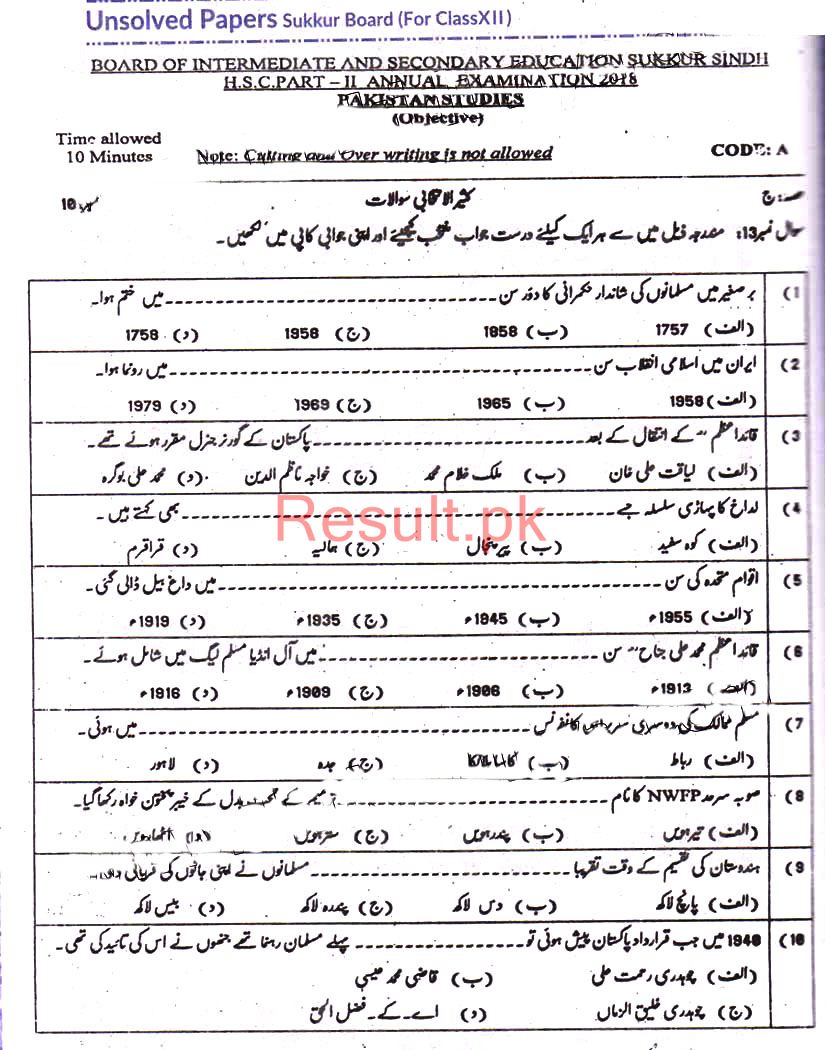 Unsolved Papers Sukkur Board (For ClassXII)
BOARD OF INTERMEDIATE AND SECONDARY EDUCATION SUKKUR SINDH
H.S.C.PART – II ANNUAL EXAMINATION 2018
PAKISTAN STUDIES
(Objective)
Time allowed
10 Minutes
Note: Cutting and Over writing is not allowed
CODE: A
حصہ: ج کثیر الانتخابی سوالات 10
سوال نمبر13: مندرجہ ذیل میں سے ہر ایک کیلئے درست جواب منتخب کیجئے اور اپنی جوابی کاپی میں لکھیں۔
(1 برصغیر میں مسلمانوں کی شاندار حکمرانی کا دؤر سن ------------------ میں ختم ہوا۔
(الف) 1757 (ب) 1858 (ج) 1958 (د) 1758
(2 ایران میں اسلامی انقلاب سن ------------------ میں رونما ہوا۔
(الف) 1958 (ب) 1965 (ج) 1969 (د) 1979
(3 قائداعظمؒ کے انتقال کے بعد ------------------ پاکستان کے گورنر جنرل مقرر ہوئے تھے۔
(الف) لیاقت علی خان (ب) ملک غلام محمد (ج) خواجہ ناظم الدین (د) محمد علی بوگرہ
(4 لداخ کا پہاڑی سلسلہ جسے ------------------ بھی کہتے ہیں۔
(الف) کوہ سفید (ب) پیر پنجال (ج) ہمالیہ (د) قراقرم
Result.pk
(5 اقوام متحدہ کی سن ------------------ میں داغ بیل ڈالی گئی۔
(الف) 1955ء (ب) 1945ء (ج) 1935ء (د) 1919ء
(6 قائداعظم محمد علی جناحؒ سن ------------------ میں آل انڈیا مسلم لیگ میں شامل ہوئے۔
(الف) 1913ء (ب) 1906ء (ج) 1909ء (د) 1916ء
(7 مسلم ممالک کی دوسری سربراہی کانفرنس ------------------ میں ہوئی۔
(الف) رباط (ب) (ج) جدہ (د) لاہور
(8 صوبہ سرحد NWFP کا نام ------------------ ترمیم کے تحت بدل کے خیبر پختون خواہ رکھا گیا۔
(الف) تیرہویں (ب) پندرہویں (ج) سترہویں (د)
(9 ہندوستان کی تقسیم کے وقت تقریبا ------------------ مسلمانوں نے اپنی جانوں کی قربانی
(الف) پانچ لاکھ (ب) دس لاکھ (ج) پندرہ لاکھ (د) بیس لاکھ
(10 1940 میں جب قرارداد پاکستان پیش ہوئی تو ------------------ پہلے مسلمان رہنما تھے جنھوں نے اس کی تائید کی تھی۔
(الف) چوہدری رحمت علی (ب) قاضی محمد عیسیٰ
(ج) چوہدری خلیق الزماں (د) اے۔کے۔فضل الحق